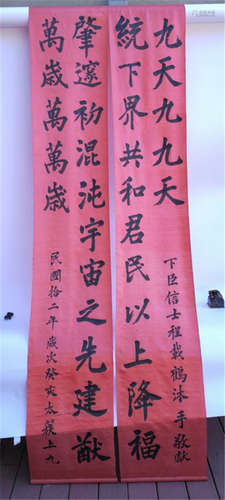 九天九九天
下臣信士程載鶴沐手敬獻
統下界共和君民以上降福
肇邃初混沌宇宙之先建猷
萬歲萬萬歲
民國拾二年歲次癸亥太簇上九